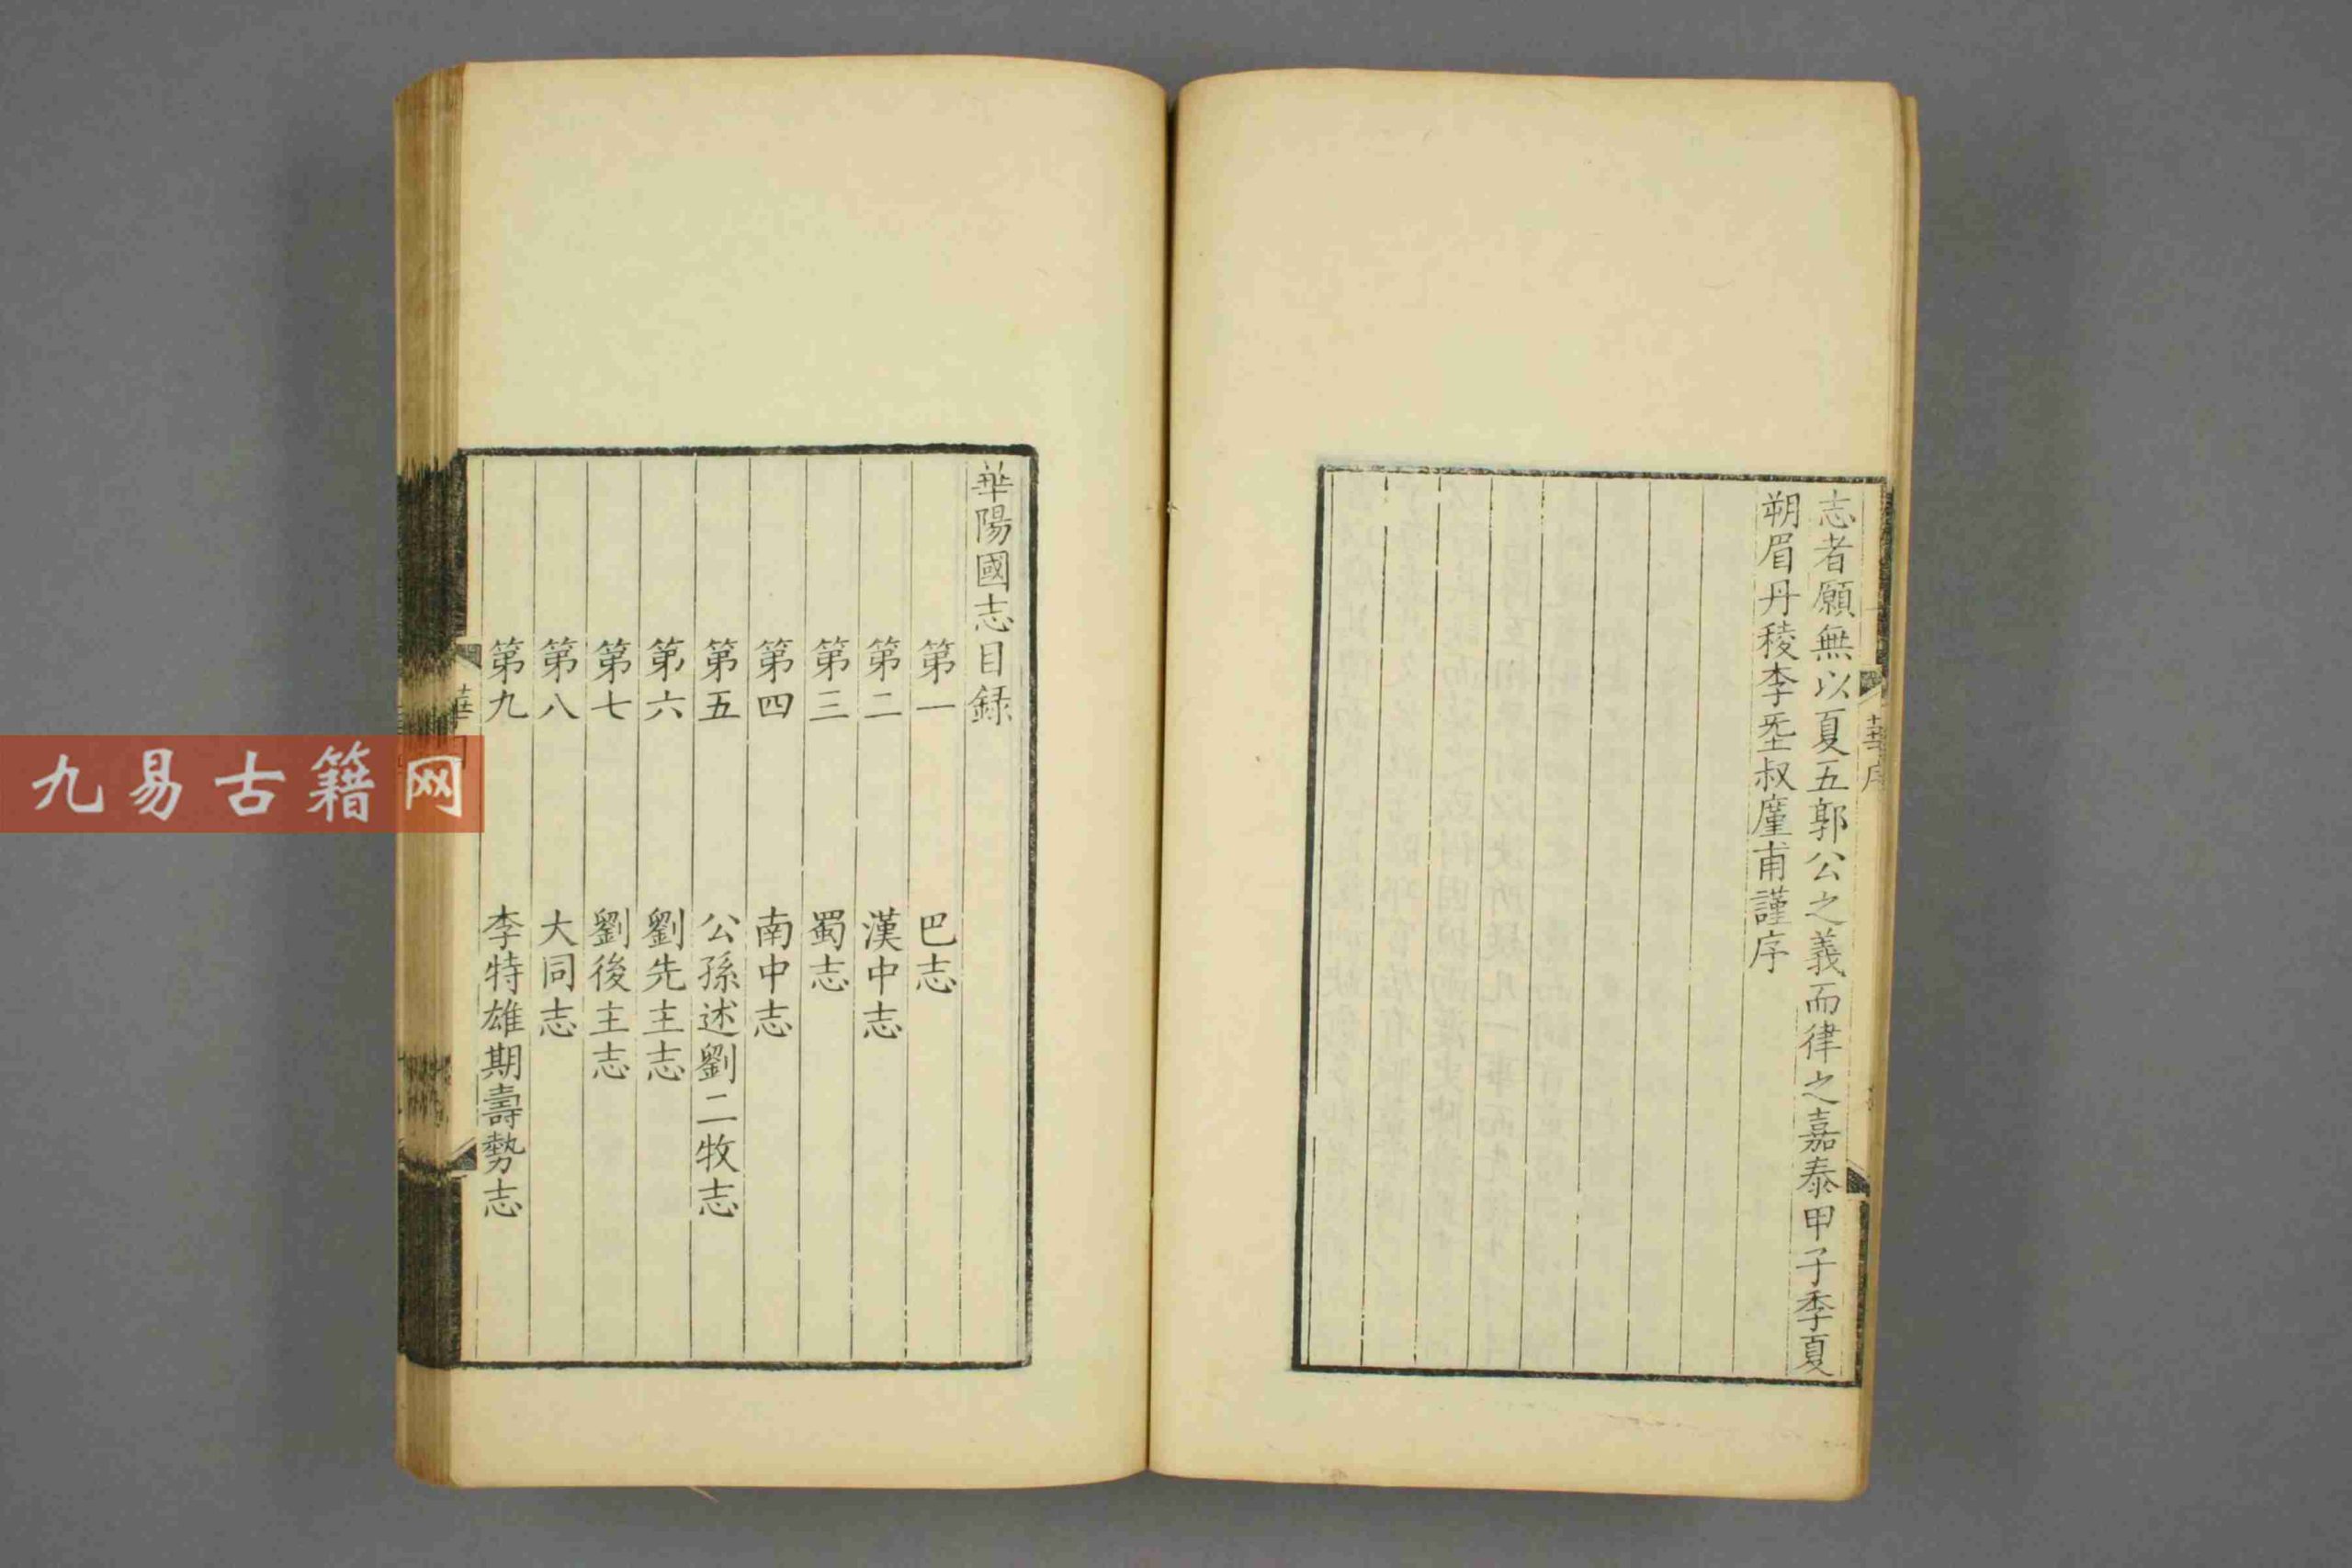 志者願無以夏五郭公之義而律之嘉泰甲子季夏
朔眉丹稜李𡌴叔廑甫謹序
華序
華陽國志目録
第一 巴志
第二 漢中志
第三 蜀志
第四 南中志
第五 公孫述劉二牧志
第六 劉先主志
第七 劉後主志
第八 大同志
第九 李特雄期壽勢志
華目
九易古籍网